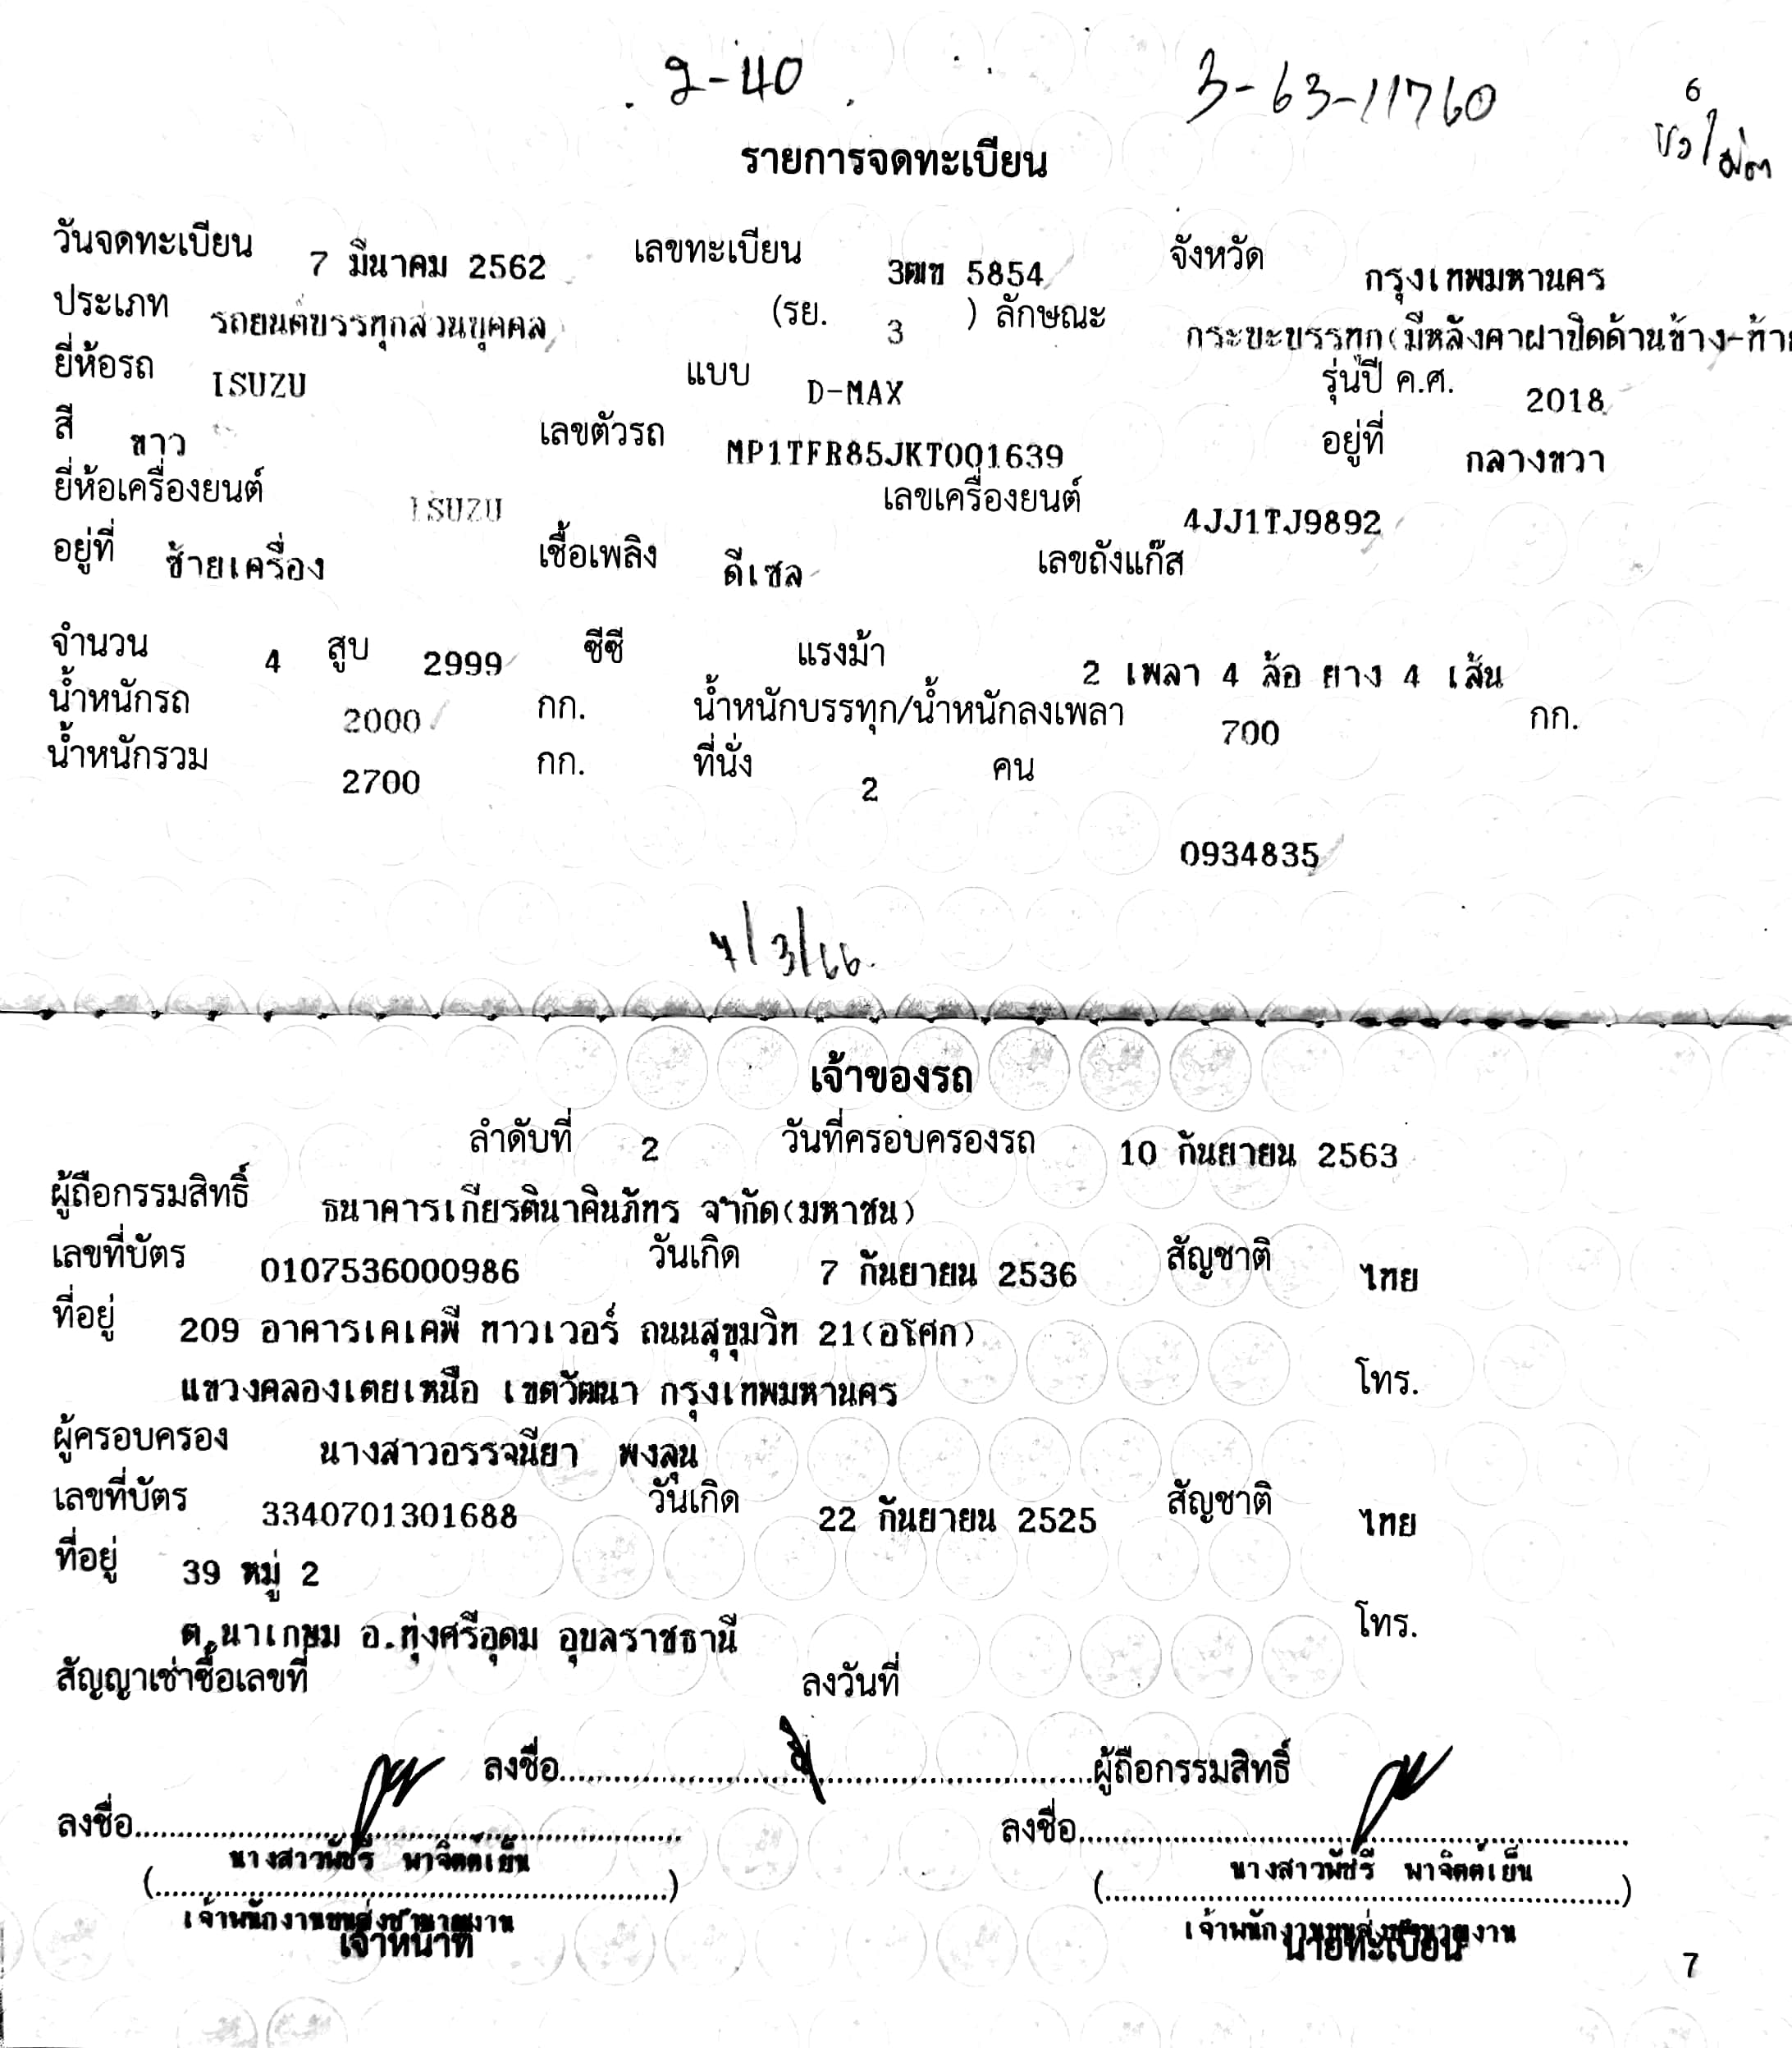 2-40
3-63-11760
6
รายการจดทะเบียน
วันจดทะเบียน 7 มีนาคม 2562 เลขทะเบียน 3ฒฃ 5854 จังหวัด กรุงเทพมหานคร
ประเภท รถยนต์บรรทุกส่วนบุคคล (รย. 3 ) ลักษณะ กระบะบรรทุก(มีหลังคาฝาปิดด้านข้าง-ท้าย
ยี่ห้อรถ ISUZU แบบ D-MAX รุ่นปี ค.ศ. 2018
สี ขาว เลขตัวรถ MP1TFR85JKT001639 อยู่ที่ กลางขวา
ยี่ห้อเครื่องยนต์ ISUZU เลขเครื่องยนต์ 4JJ1TJ9892
อยู่ที่ ซ้ายเครื่อง เชื้อเพลิง ดีเซล เลขถังแก๊ส
จำนวน 4 สูบ 2999 ซีซี แรงม้า 2 เพลา 4 ล้อ ยาง 4 เส้น
น้ำหนักรถ 2000 กก. น้ำหนักบรรทุก/น้ำหนักลงเพลา 700 กก.
น้ำหนักรวม 2700 กก. ที่นั่ง 2 คน
0934835
7/3/66.
เจ้าของรถ
ลำดับที่ 2 วันที่ครอบครองรถ 10 กันยายน 2563
ผู้ถือกรรมสิทธิ์ ธนาคารเกียรตินาคินภัทร จำกัด(มหาชน)
เลขที่บัตร 0107536000986 วันเกิด 7 กันยายน 2536 สัญชาติ ไทย
ที่อยู่ 209 อาคารเคเคพี ทาวเวอร์ ถนนสุขุมวิท 21(อโศก)
แขวงคลองเตยเหนือ เขตวัฒนา กรุงเทพมหานคร โทร.
ผู้ครอบครอง นางสาวอรรจนียา พงลุน
เลขที่บัตร 3340701301688 วันเกิด 22 กันยายน 2525 สัญชาติ ไทย
ที่อยู่ 39 หมู่ 2
ต.นาเกษม อ.ทุ่งศรีอุดม อุบลราชธานี โทร.
สัญญาเช่าซื้อเลขที่ ลงวันที่
ลงชื่อ ผู้ถือกรรมสิทธิ์
ลงชื่อ ลงชื่อ
นางสาวพัชรี พาจิตต์เย็น นางสาวพัชรี พาจิตต์เย็น
( ) ( )
เจ้าพนักงานขนส่งชำนาญงาน เจ้าพนักงานขนส่งชำนาญงาน
เจ้าหน้าที่ นายทะเบียน
7